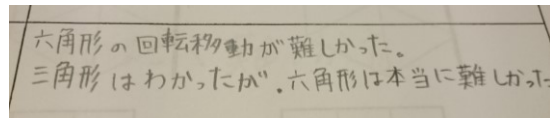 六角形の回転移動が難しかった。
三角形はわかったが、六角形は本当に難しかった